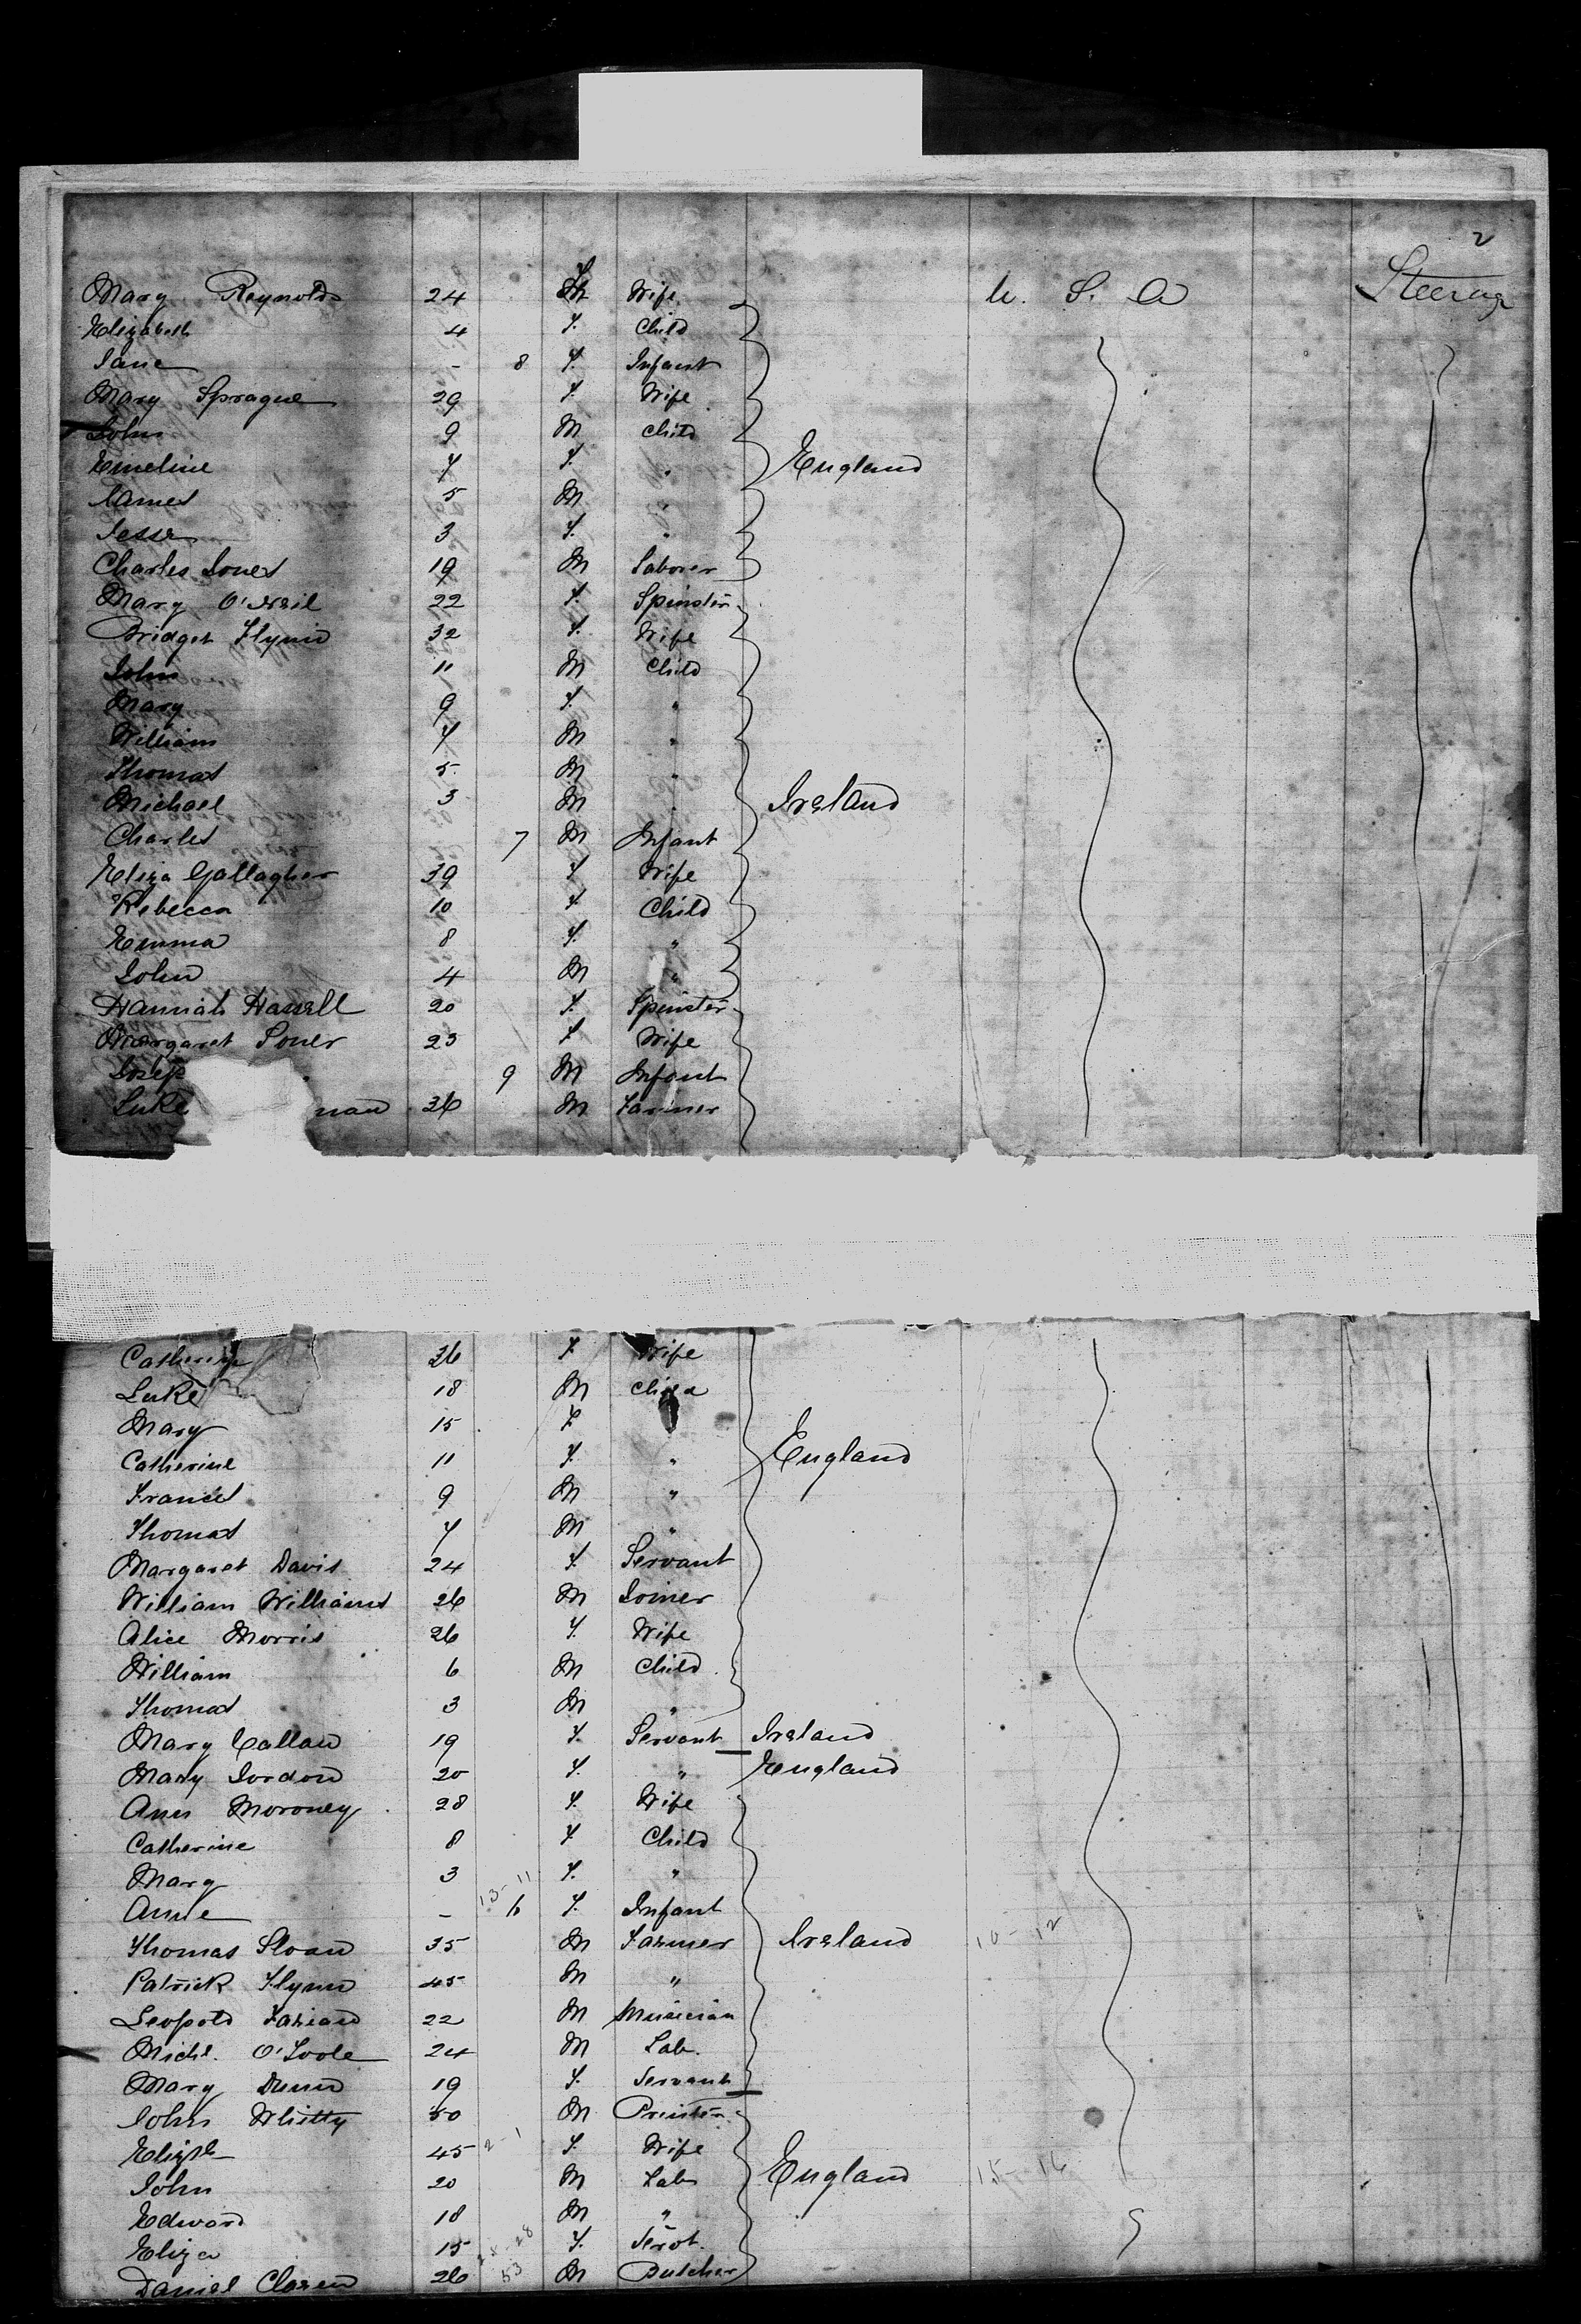 2
Mary Reynolds 24 F Wife U. S. A Steerage
Elizabeth 4 F. Child
Jane - 8 F. Infant
Mary Sprague 29 F. Wife
John 9 M Child
Emeline 7 F. " England
James 5 M "
Jesse 3 F. "
Charles Jones 19 M Laborer
Mary O'Neil 22 F. Spinster
Bridget Flynn 32 F. Wife
John 11 M Child
Mary 9 F. "
William 7 M "
Thomas 5 M "
Michael 3 M " Ireland
Charles 7 M Infant
Eliza Gallagher 39 F Wife
Rebecca 10 F Child
Emma 8 F. "
John 4 M "
Hannah Hassell 20 F. Spinster
Margaret Jones 23 F Wife
Josep 9 M Infant
Luke nan 36 M Farmer
Catherine 36 F Wife
Luke 18 M Child
Mary 15 F
Catherine 11 F. " England
Frances 9 M "
Thomas 7 M "
Margaret Davis 24 F. Servant
William Williams 26 M Joiner
Alice Morris 26 F. Wife
William 6 M Child
Thomas 3 M "
Mary Callan 19 F. Servant Ireland
Mary Jordon 20 F. " England
Ann Moroney 28 F. Wife
Catherine 8 F Child
Mary 3 F. "
13-11
Anne - 6 F. Infant
Thomas Sloan 35 M Farmer Ireland 10-12
Patrick Flynn 45 M "
Leopold 22 M Musician
Michl. O'Toole 24 M Lab.
Mary Dunn 19 F. Servant
John Whitty 50 M Printer
2-1
Elizth 45 F. Wife
John 20 M Lab England 15-16
Edward 18 M "
Eliza 15 F. Servt.
28
53
Daniel 26 M Butcher